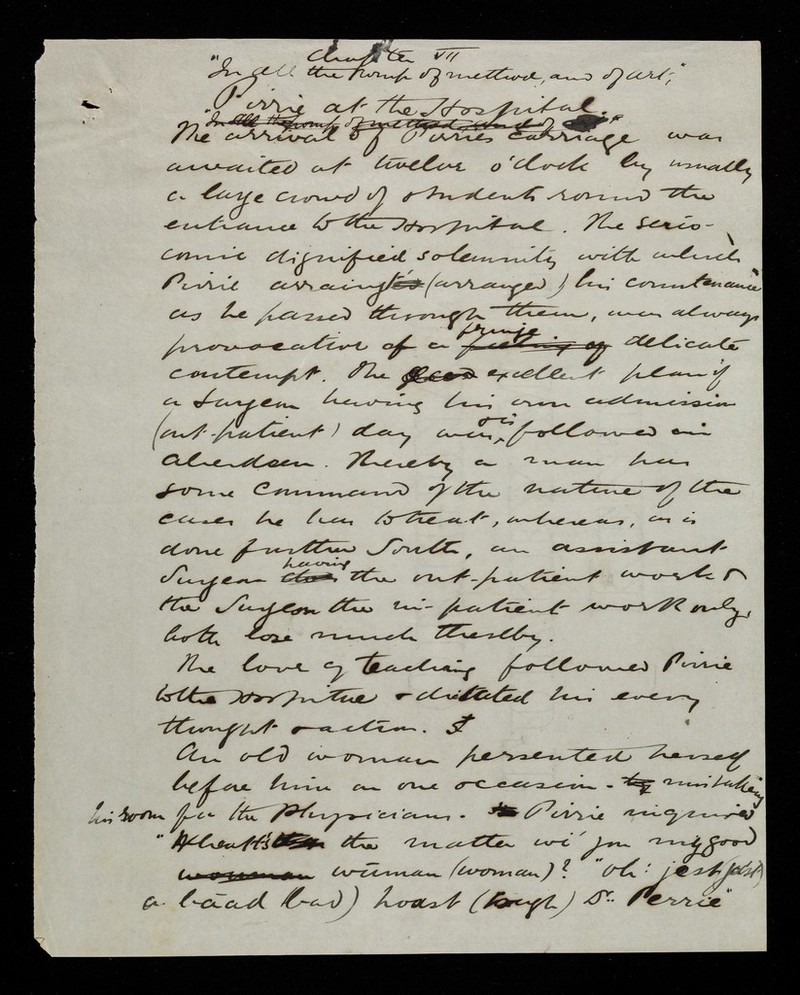 Chapter VII
"In all the pomp of method, and of art,"
Pirrie at the Hospital.
"In all the pomp of method and of
The arrival of Pirrie's carriage was
awaited at twelve o'clock by usually
a large crowd of students round the
entrance to the Hospital. The serio-
comic dignified solemnity with which
Pirrie arraingt (arranged) his countenance
as he passed through them, was always
provocative of a fringe feeling of delicate
contempt. The excellent plan of
a Surgeon having his own admission
(out-patient) day was, is, followed in
Aberdeen. Thereby a man has
some command of the nature of the
cases he has to treat, whereas, as is
done further South, an assistant
Surgeon having does the out-patient work &
the Surgeon the in-patient work only,
both lose much thereby.
The love of teaching followed Pirrie
to the Hospital & dictated his every
thought & action.
An old woman persented herself
before him on one occasion - by mistaking
his room for the Physicians. Pirrie inquired
"Whaut's the matter wi' you my good
wooman wūman (woman)? "Oh! jest (just)
a bāad (bad) hoast (cough) Dr. Perrie"